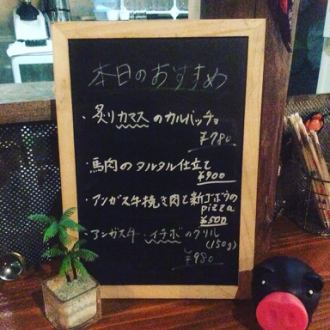 本日のおすすめ
・炙りカマスのカルパッチョ
¥780
・馬肉のタルタル仕立て
¥900
・アンガス牛挽き肉と新ゴボウの
pizza
¥500
・アンガス牛・イチボのグリル
(150g)
¥980